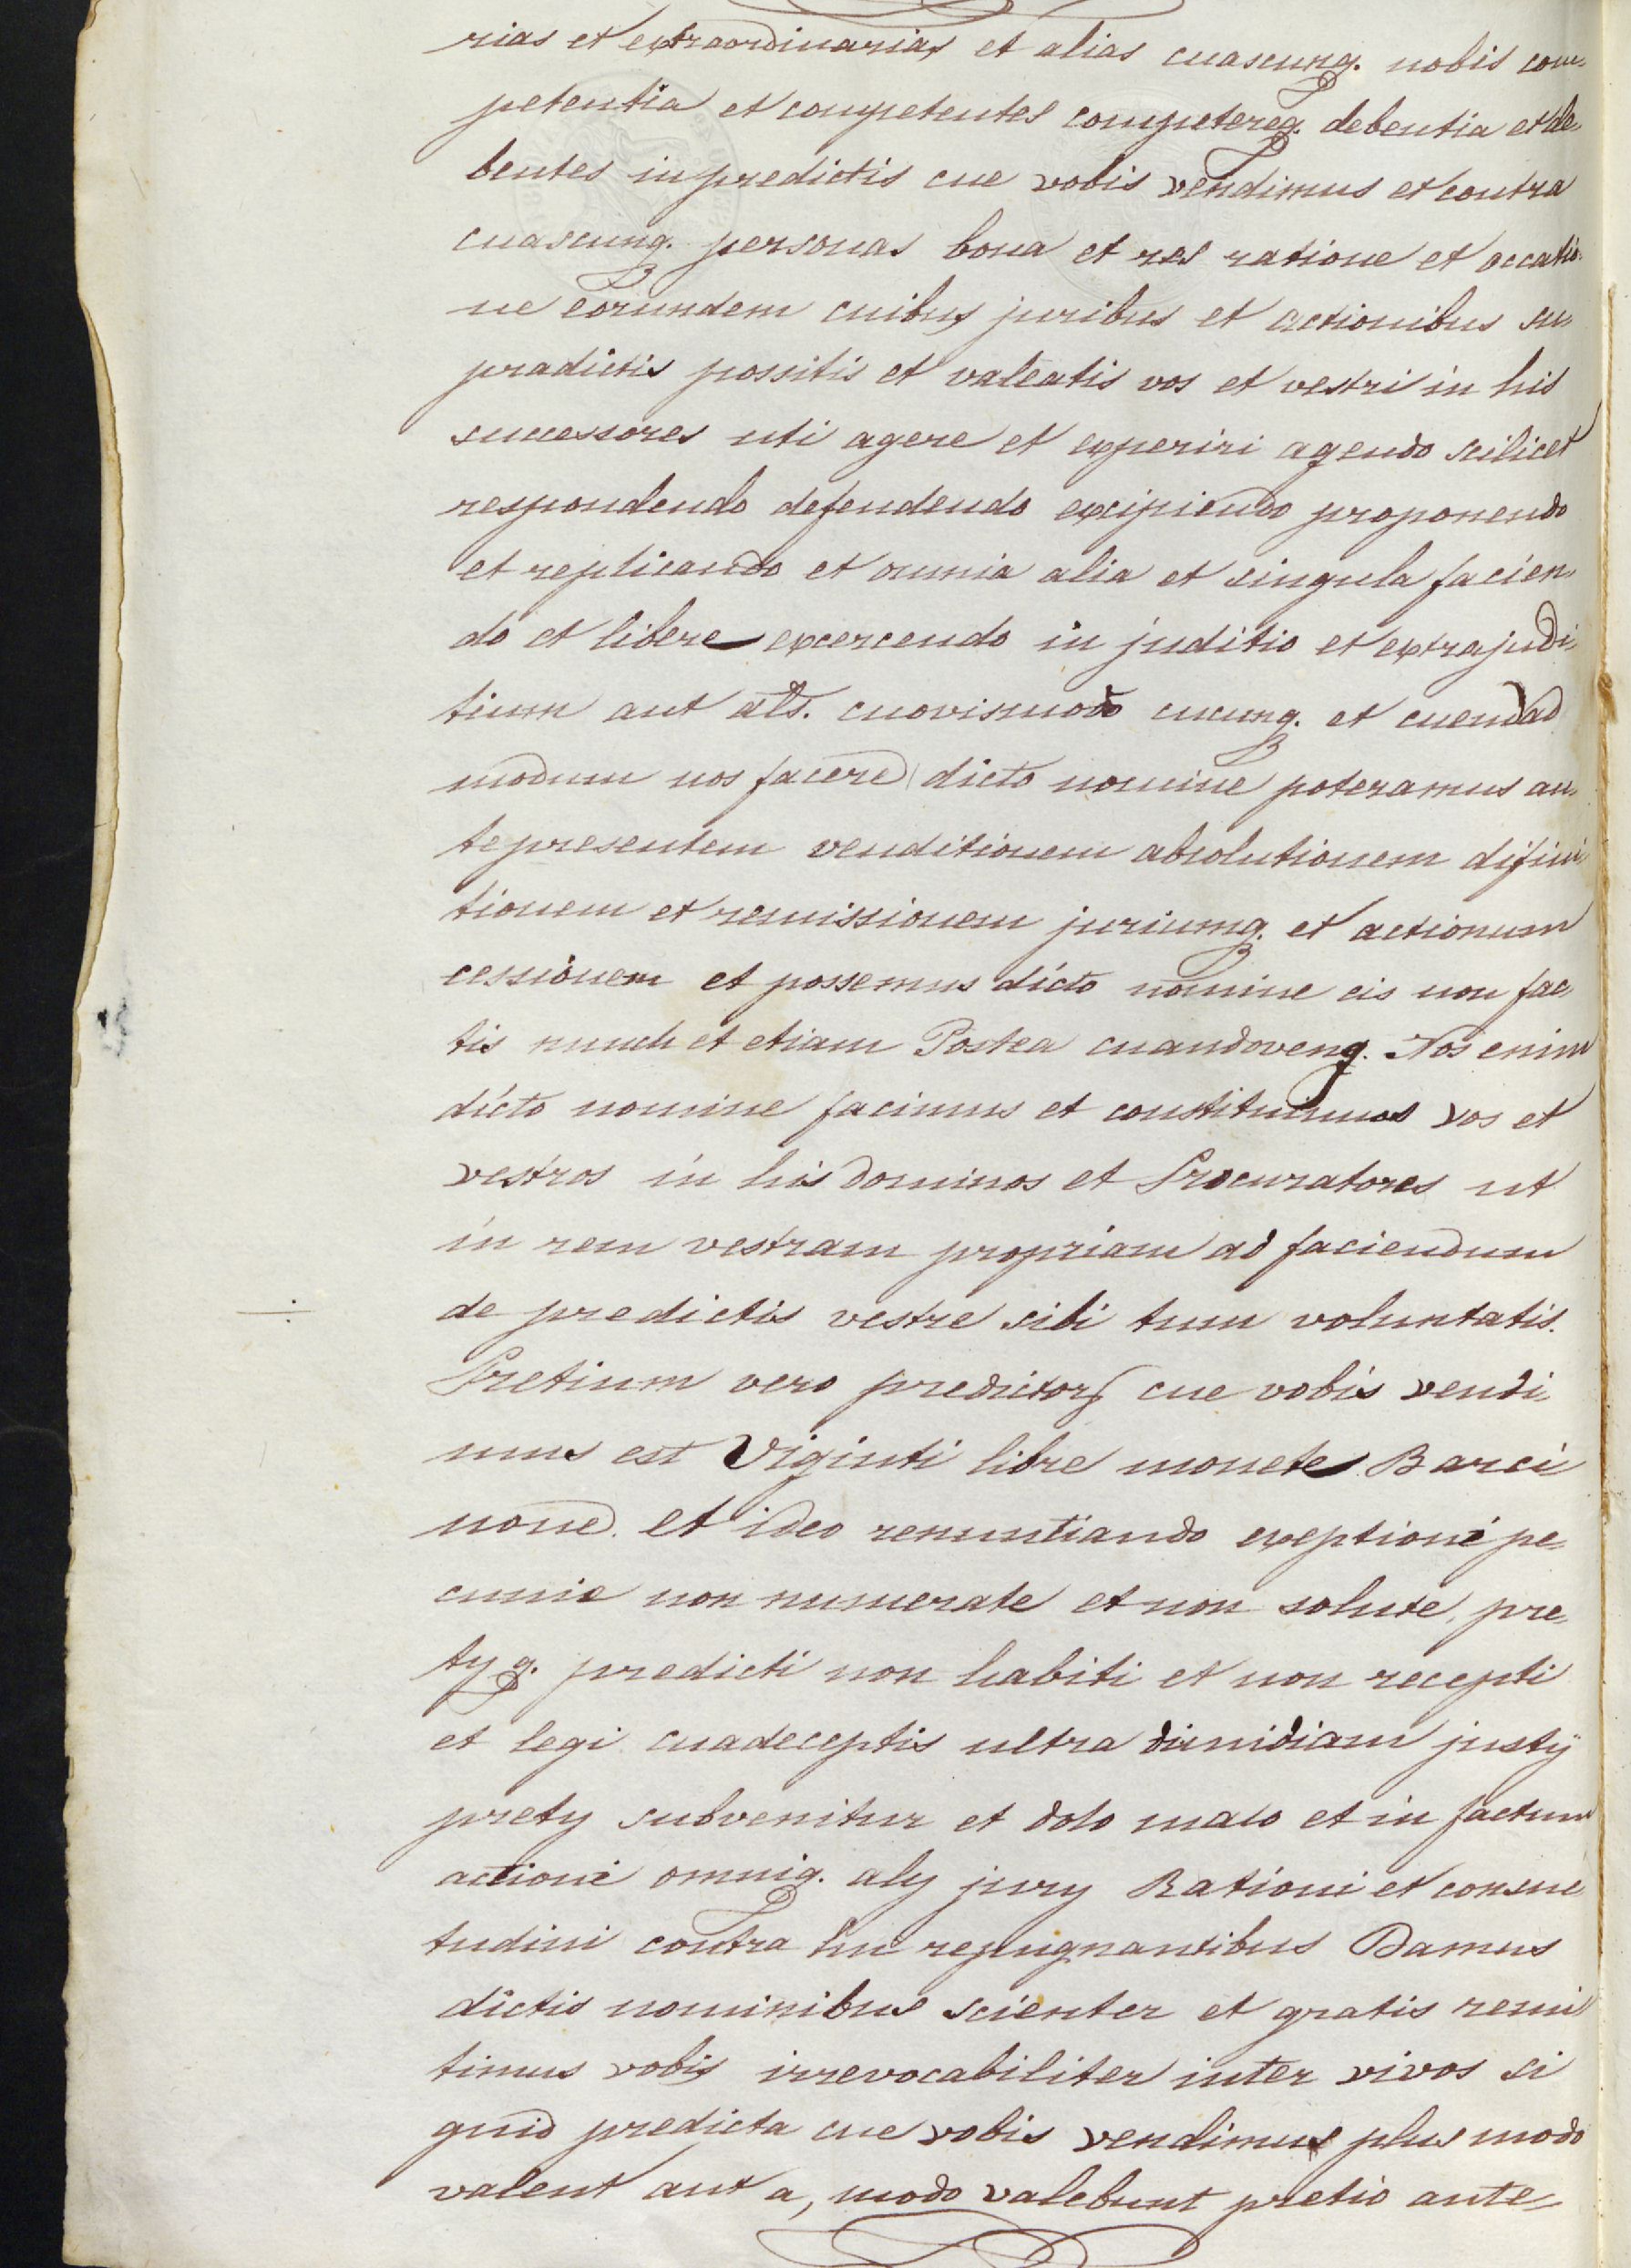 rias et extraordinarias et alias cuascunq. nobis com=
petentia et competentes competereq. debentia et de=
bentes in predictis cue vobis vendimus et contra
cuascunq. personas bona et res ratione et occatio=
ne eorumdem cuibus juribus et actionibus su=
pradictis possitis et valeatis vos et vestri in his
successores uti agere et experiri agendo scilicet
respondendo defendendo excipiendo proponendo
et replicando et omnia alia et singula facien=
do et libere excercendo in juditio et extrajudi=
tium aut als. cuovismodo cucunq. et cuendad
modum nos facere dicto nomine poteramus an=
te presentem venditionem absolutionem difini=
tionem et remissionem juriumq. et actionum
cessionem et possemus dicto nomine eis non fac=
tis nunch et etiam Postea cuandovenq. Nos enim
dicto nomine facimus et constituimus vos et
vestros in his dominos et Procuratores ut
in rem vestram propriam ad faciendum
de predictis vestre sibi tum voluntatis.
Pretium vero predictors cue vobis vendi=
mus est Viginti libre monete Barci
none. et ideo renuntiando exeptioni pe=
cunie non numerate et non solute, pre=
tyq. predicti non habiti et non recepti
et legi cuadeceptis ultra dimidiam justÿ
prety subvenitur et dolo malo et in factum
actioni omniq. aly jury Rationi et consue
tudini contra huc repugnantibus Damus
dictis nominibus scienter et gratis remi
timus vobis irrevocabiliter inter vivos si
quid predicta cue vobis vendimus plus modo
valent aut a, modo valebunt pretio ante=